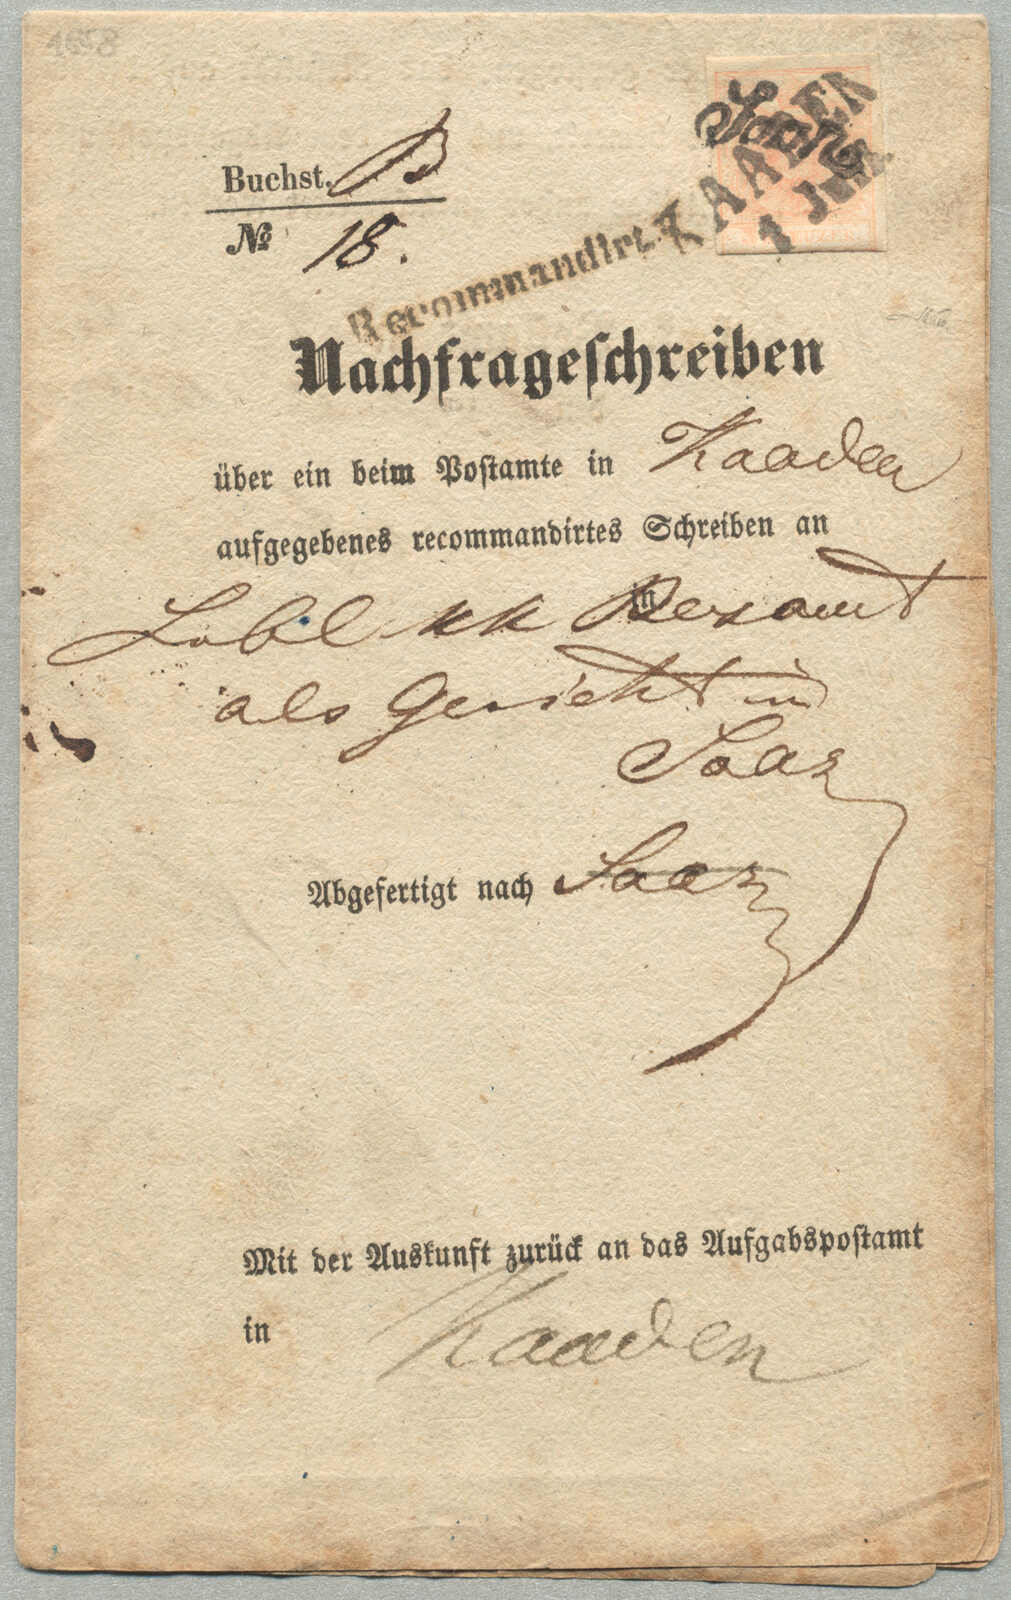 Buchst. B
№ 18.
Saaz
KAADEN
1 Jun
Recommandirt.
Nachfrageſchreiben
über ein beim Poſtamte in Kaaden
aufgegebenes recommandirtes Schreiben an
Löbl kk Bezamt
in
als Gericht in
Saaz
Abgefertigt nach Saaz
Mit der Auskunft zurück an das Aufgabspoſtamt
in Kaaden